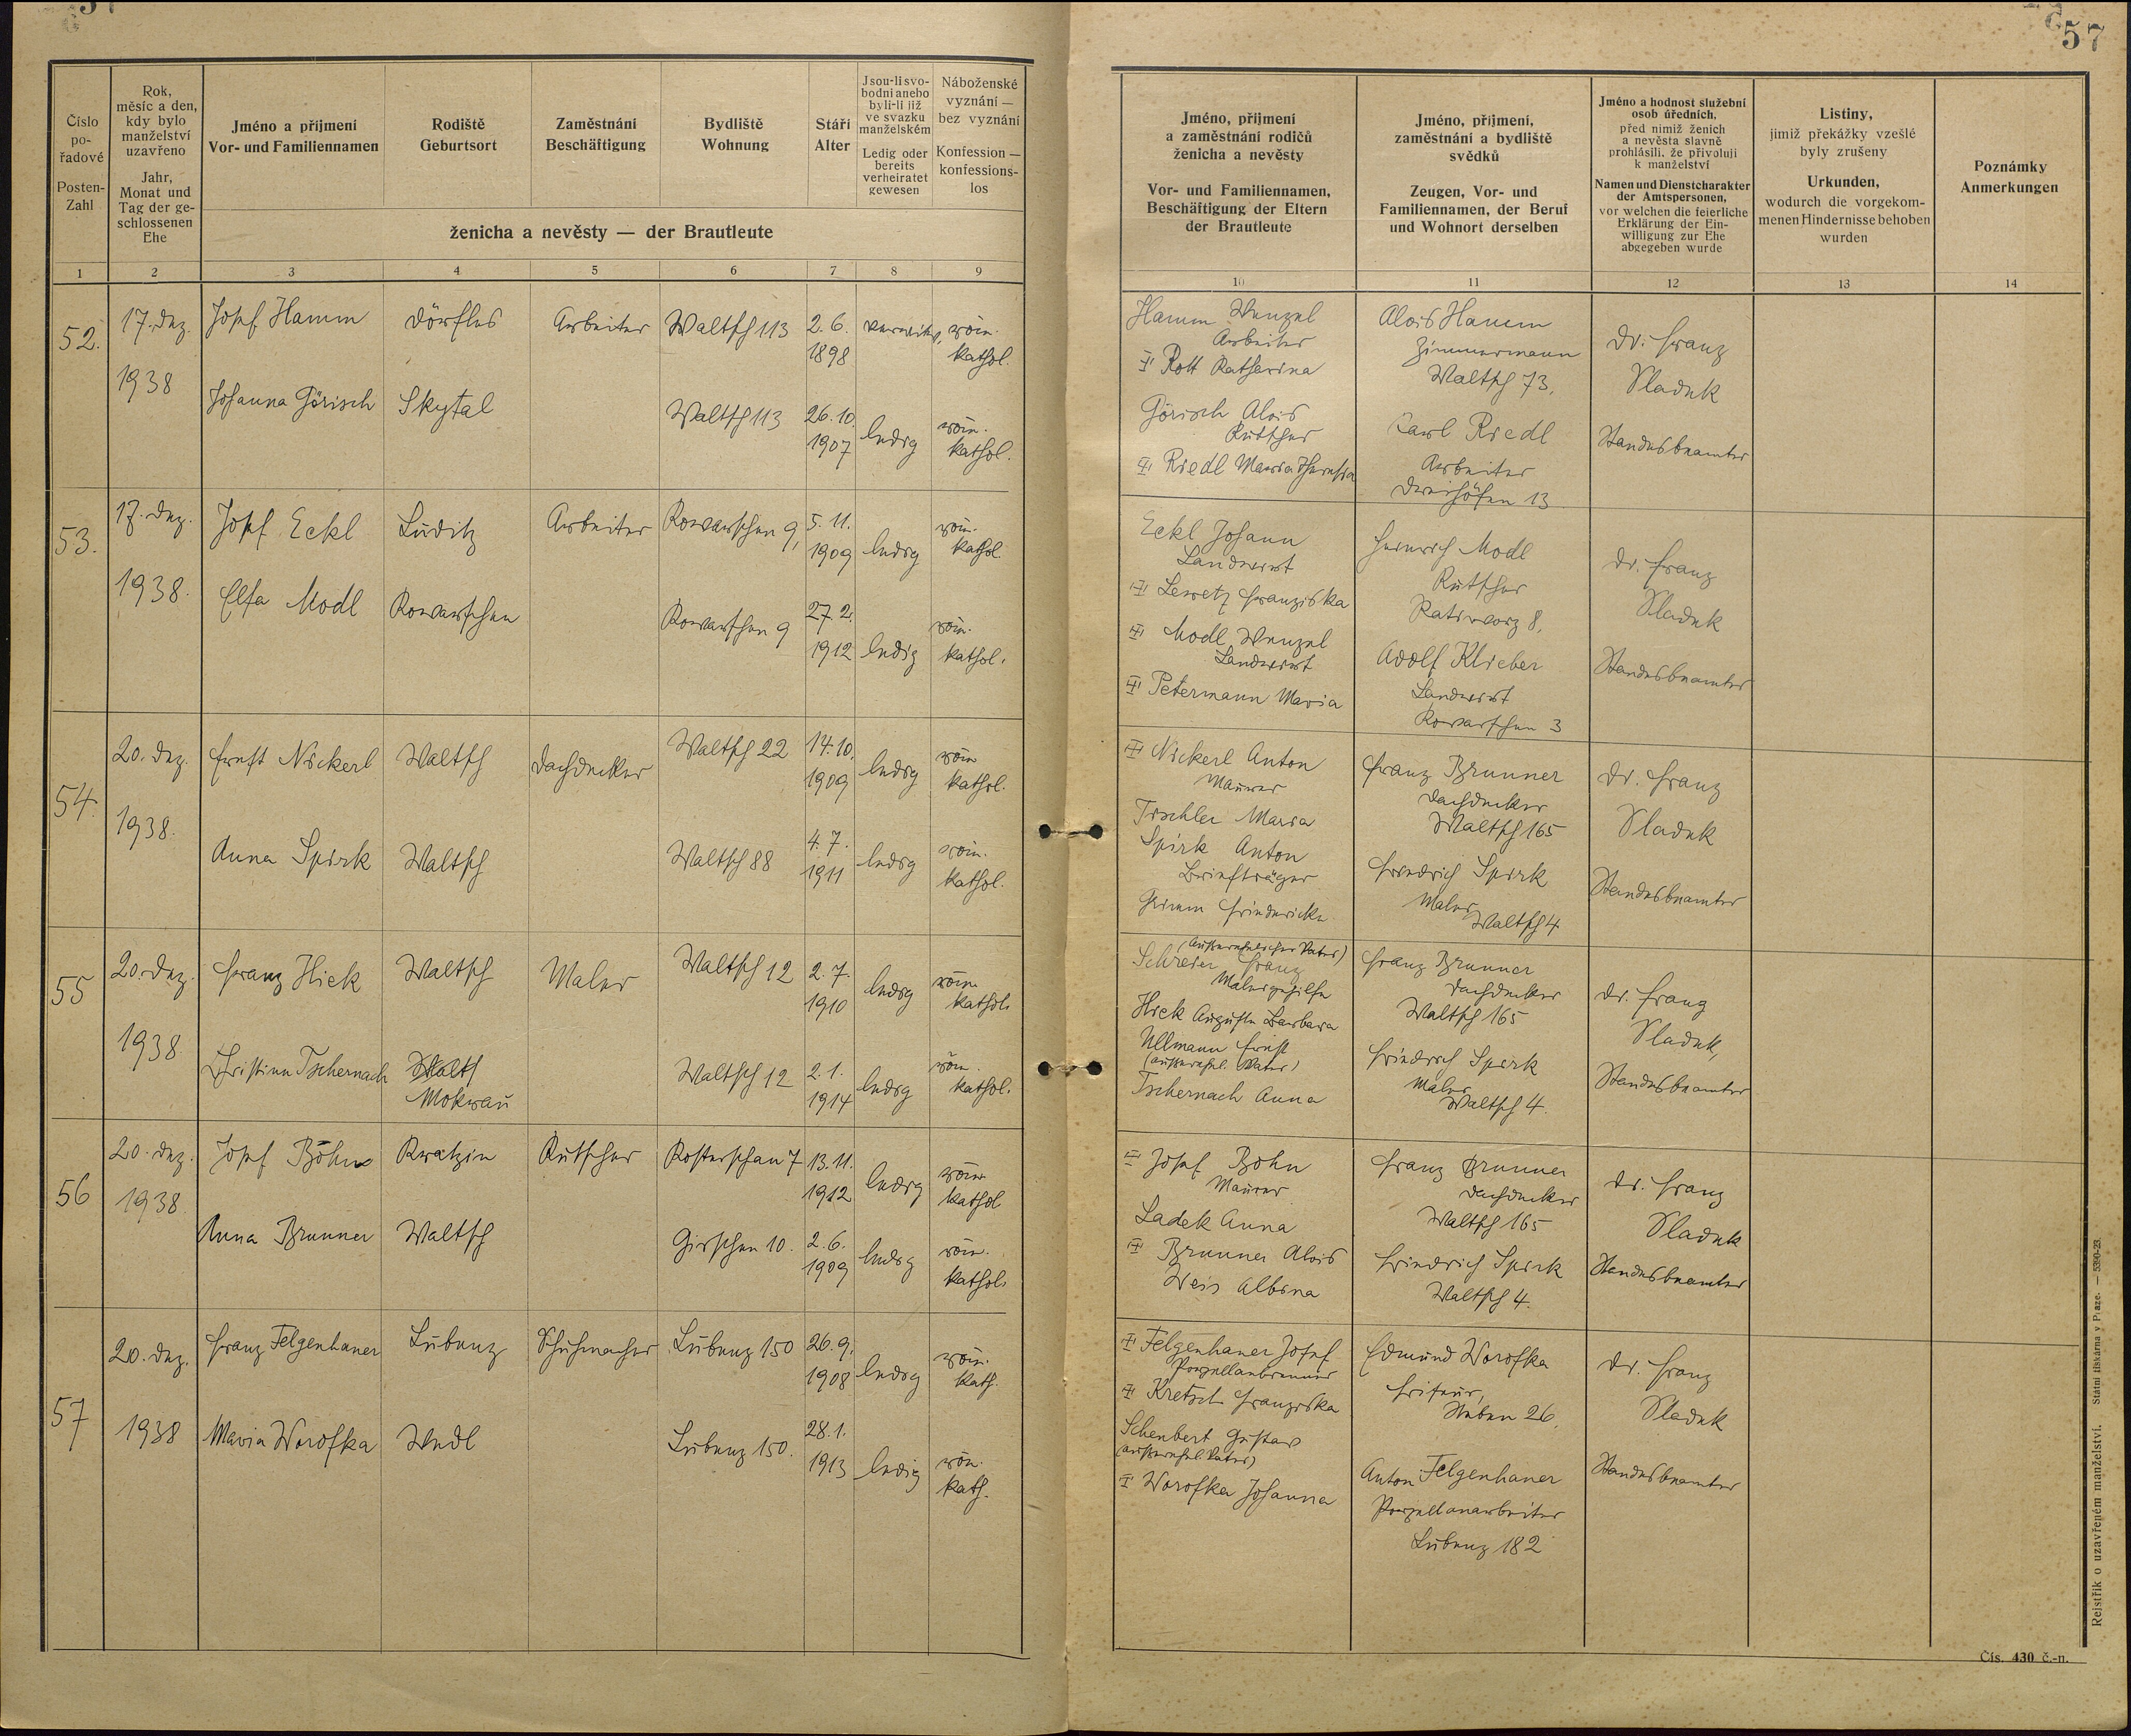 57
Číslo pořadové
Posten-Zahl
Rok, měsíc a den, kdy bylo manželství uzavřeno
Jahr, Monat und Tag der geschlossenen Ehe
Jméno a příjmení
Vor- und Familiennamen
Rodiště
Geburtsort
Zaměstnání
Beschäftigung
Bydliště
Wohnung
Stáří
Alter
Jsou-li svobodni anebo byli-li již ve svazku manželském
Ledig oder bereits verheiratet gewesen
Náboženské vyznání — bez vyznání
Konfession — konfessionslos
ženicha a nevěsty — der Brautleute
1 2 3 4 5 6 7 8 9
52.
17. Dez. 1938
Josef Hamm
Dörfles
Arbeiter
Waltsch 113
2. 6. 1898
röm. kathol.
Johanna Görisch
Skytal
Waltsch 113
26.10. 1907
ledig
röm. kathol.
53.
17. Dez. 1938.
Josef Eckl
Luditz
Arbeiter
Kowarschen 9,
5. 11. 1909
ledig
röm. kathol.
Elsa Modl
Kowarschen
Kowarschen 9
27. 2. 1912
ledig
röm. kathol.
54.
20. Dez. 1938.
Ernst Nickerl
Waltsch
Dachdecker
Waltsch 22
14.10. 1909
ledig
röm. kathol.
Anna Spirk
Waltsch
Waltsch 88
4. 7. 1911
ledig
röm. kathol.
55
20. Dez. 1938
Franz Hiek
Waltsch
Maler
Waltsch 12
2. 7. 1910
ledig
röm. kathol.
Christine Tschernach
Mokrau
Waltsch 12
2. 1. 1914
ledig
röm. kathol.
56
20. Dez. 1938.
Josef Böhm
Kratzin
Kutscher
Kosterschan 7
13. 11. 1912
ledig
röm. kathol
Anna Brunner
Waltsch
Girschen 10.
2. 6. 1909
ledig
röm. kathol.
57
20. Dez. 1938
Franz Felgenhauer
Lubenz
Schuhmacher
Lubenz 150
26. 9. 1908
ledig
röm. kath.
Maria Worofka
Wedl
Lubenz 150.
28. 1. 1913
ledig
röm. kath.
57
Jméno, příjmení a zaměstnání rodičů ženicha a nevěsty
Vor- und Familiennamen, Beschäftigung der Eltern der Brautleute
Jméno, příjmení, zaměstnání a bydliště svědků
Zeugen, Vor- und Familiennamen, der Beruf und Wohnort derselben
Jméno a hodnost služební osob úředních, před nimiž ženich a nevěsta slavně prohlásili, že přivolují k manželství
Namen und Dienstcharakter der Amtspersonen, vor welchen die feierliche Erklärung der Einwilligung zur Ehe abgegeben wurde
Listiny, jimiž překážky vzešlé byly zrušeny
Urkunden, wodurch die vorgekommenen Hindernisse behoben wurden
Poznámky
Anmerkungen
10 11 12 13 14
Hamm Wenzel
Arbeiter
Rott Katharina
Görisch Alois
Kutscher
Riedl Maria Theresia
Alois Hamm
Zimmermann
Waltsch 73,
Karl Riedl
Arbeiter
Dreihöfen 13
Dr. Franz
Sladek
Standesbeamter
Eckl Johann
Landwirt
Lewetz Franziska
Modl Wenzel
Landwirt
Petermann Maria
Heinrich Modl
Kutscher
Ratiworz 8,
Adolf Klieber
Landwirt
Kowarschen 3
Dr. Franz
Sladek
Standesbeamter
Nickerl Anton
Maurer
Tischler Maria
Spirk Anton
Briefträger
Grimm Friedericke
Franz Brunner
Dachdecker
Waltsch 165
Friedrich Spirk
Maler
Waltsch 4
Dr. Franz
Sladek
Standesbeamter
(außerehelicher Vater)
Schreier Franz
Malergehilfe
Hiek Auguste Barbara
Ullmann Ernst
(außerehel. Vater)
Tschernach Anna
Franz Brunner
Dachdecker
Waltsch 165
Friedrich Spirk
Maler
Waltsch 4.
Dr. Franz
Sladek,
Standesbeamter
Josef Böhm
Maurer
Ladek Anna
Brunner Alois
Weis Albina
Franz Brunner
Dachdecker
Waltsch 165
Friedrich Spirk
Waltsch 4.
Dr. Franz
Sladek
Standesbeamter
Felgenhauer Josef
Porzellanbrenner
Kretsch Franziska
Schenbert Gustav
(außerehel. Vater)
Worofka Johanna
Edmund Worofka
Friseur,
Stuben 26.
Anton Felgenhauer
Porzellanarbeiter
Lubenz 182
Dr. Franz
Sladek
Standesbeamter
Rejstřík o uzavřeném manželství. Státní tiskárna v Praze. — 5390-23.
Čís. 430 č.-n.